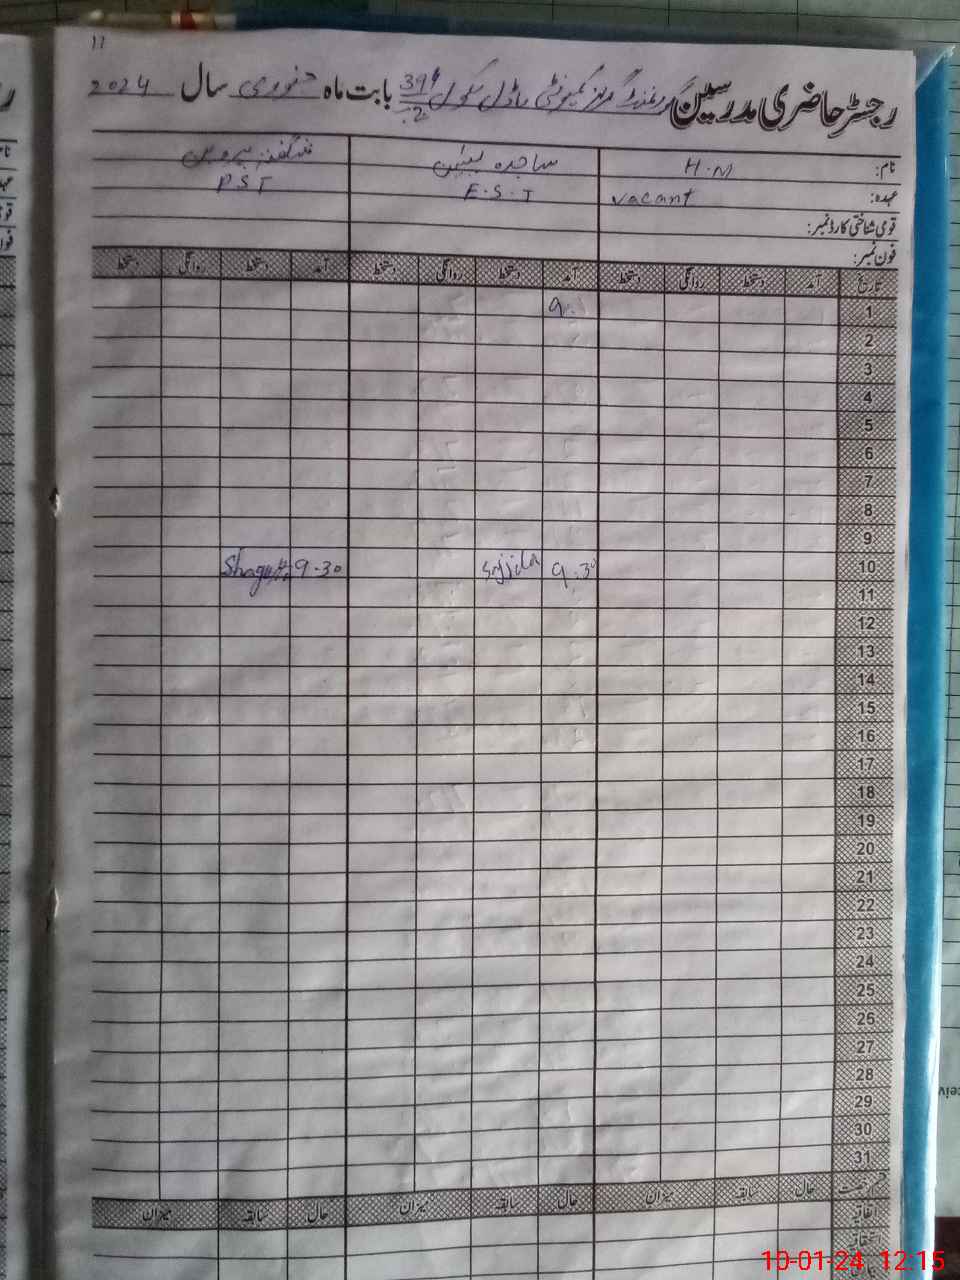 17
رجسٹر حاضری مدرسین گورنمنٹ گرلز کمیونٹی ماڈل سکول 394/2 بابت ماہ جنوری سال 2024
نام: H.M ساجدہ شگفتہ پروین
عہدہ: vacant E.S.T P.S.T
قومی شناختی کارڈ نمبر:
فون نمبر:
تاریخ آمد دستخط روانگی دستخط آمد دستخط روانگی دستخط آمد دستخط روانگی دستخط
1 9.
2
3
4
5
6
7
8
9
10 9.30 Sajida 9.30 Shagufta
11
12
13
14
15
16
17
18
19
20
21
22
23
24
25
26
27
28
29
30
31
قسم رخصت حال سابقہ میزان حال سابقہ میزان حال سابقہ میزان
اتفاقیہ
10-01-24 12:15